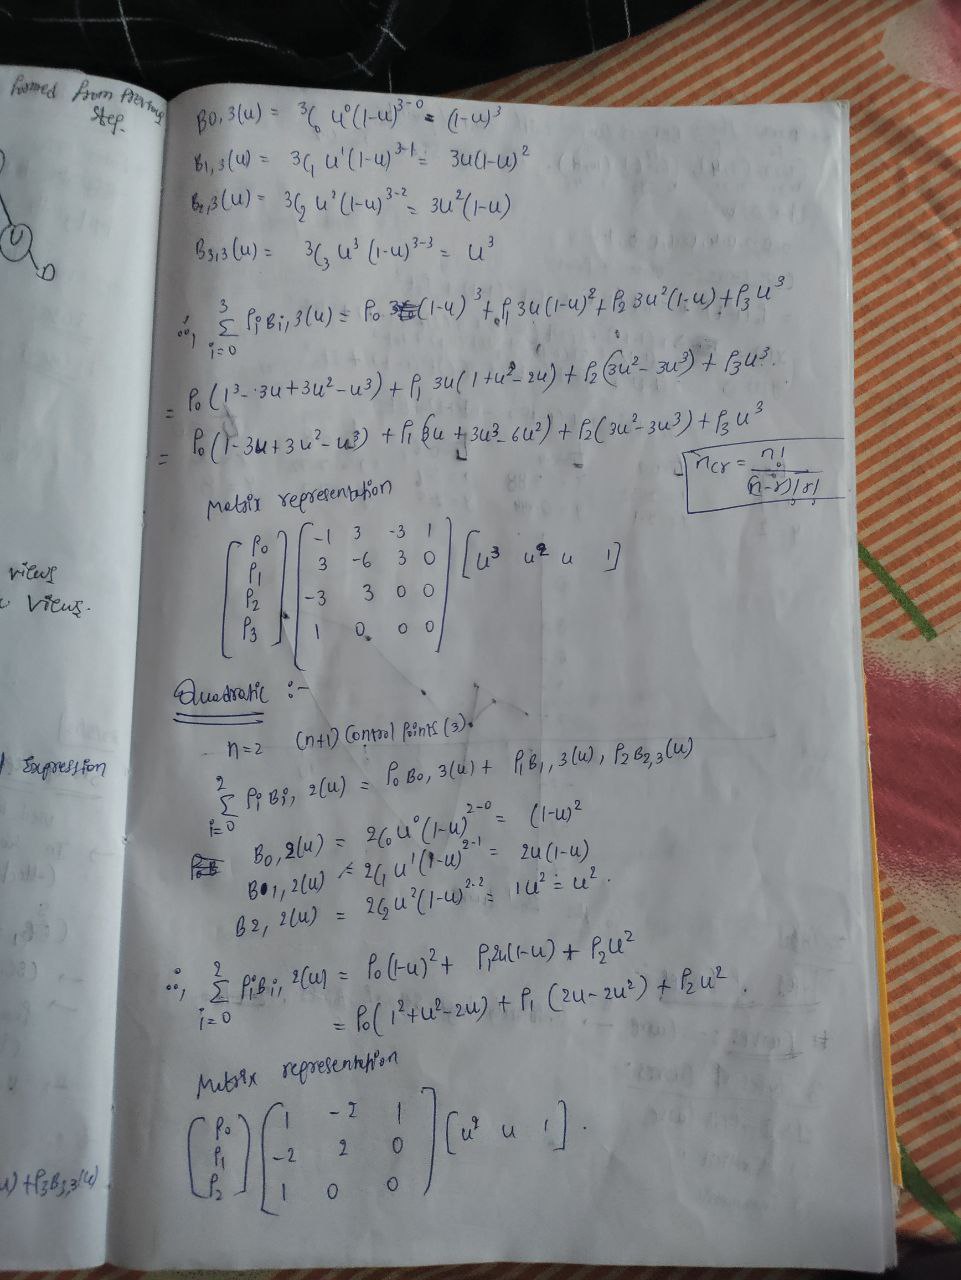 Formed from Previous
Step.
views
views.
Expression
u) + P3B3,3(u)
B0,3(u) = ³C₀ u⁰(1-u)³⁻⁰ = (1-u)³
B1,3(u) = 3C₁ u¹(1-u)³⁻¹ = 3u(1-u)²
B2,3(u) = 3C₂ u²(1-u)³⁻² = 3u²(1-u)
B3,3(u) = ³C₃ u³ (1-u)³⁻³ = u³
∴, 3 Σ i=0 PiBi,3(u) = P₀ (1-u)³ + P₁ 3u(1-u)² + P₂ 3u²(1-u) + P₃ u³
= P₀ (1³ - 3u + 3u² - u³) + P₁ 3u(1+u²-2u) + P₂ (3u² - 3u³) + P₃u³.
= P₀ (1-3u+3u²-u³) + P₁ (3u + 3u³ - 6u²) + P₂(3u²-3u³) + P₃u³
ncr = n! / (n-r)! r!
Matrix representation
P₀ -1 3 -3 1
P₁ 3 -6 3 0 [u³ u² u 1]
P₂ -3 3 0 0
P₃ 1 0 0 0
Quadratic :-
n=2 (n+1) Control Points (3).
2 Σ i=0 PiBi,2(u) = P₀B₀,3(u) + P₁B₁,3(u), P₂B₂,3(u)
B0,2(u) = 2C₀ u⁰(1-u)²⁻⁰ = (1-u)²
B1,2(u) = 2C₁ u¹(1-u)²⁻¹ = 2u(1-u)
B2,2(u) = 2C₂ u²(1-u)²⁻² = 1u² = u².
∴, 2 Σ i=0 PiBi,2(u) = P₀(1-u)² + P₁2u(1-u) + P₂u²
= P₀(1²+u²-2u) + P₁ (2u-2u²) + P₂u².
Matrix representation
P₀ 1 -2 1
P₁ -2 2 0 [u² u 1].
P₂ 1 0 0